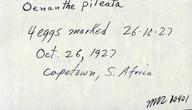 Oenanthe pileata
4 eggs marked 26·10·27
Oct. 26, 1927
Capetown, S. Africa
MVZ 10401